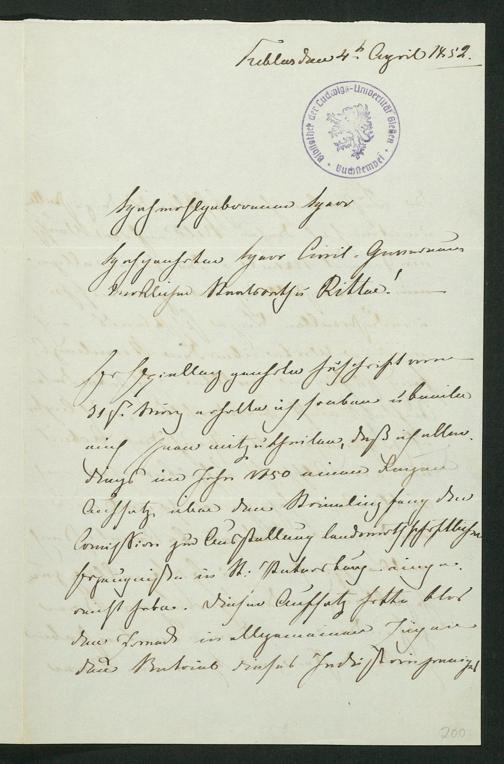 den 4t. April 1852.
Bibliothek der Ludwigs-Universität Gießen
Buchstempel
Hochwohlgeborener Herr
Hochgeehrter Herr Civil-Gouverneur
Wirklicher Staatsrath u Ritter!
Ihr geehrte Zuschrift vom
31st. März erhalte ich soeben u beeile
mich Ihnen mitzutheilen, daß ich aller
dings im Jahr 1850 einen kurzen
Aufsatz über den Strömlingsfang der
Comission zur Ausstellung landwirthschaftlicher
Erzeugniße in St. Petersburg einge
reicht habe. Dieser Aufsatz hatte blos
den Zweck in allgemeinen Zügen
den Betrieb dieses Industriezweiges
200